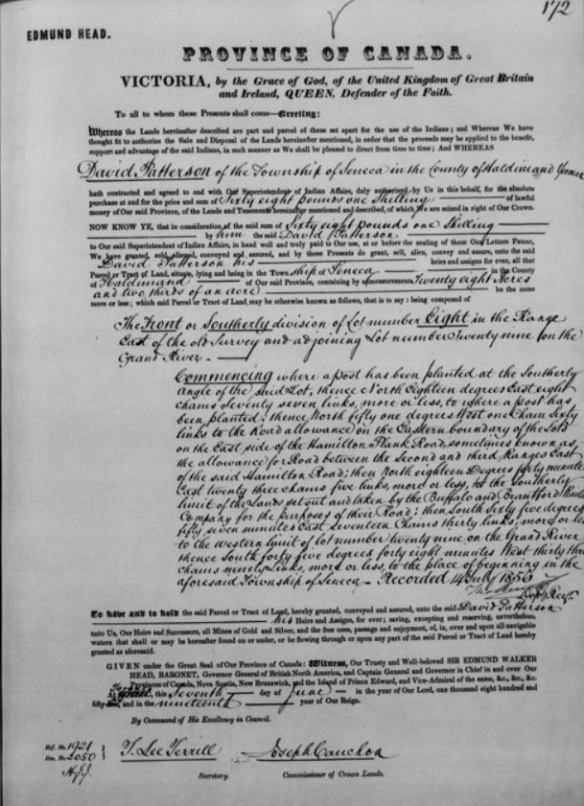 172
EDMUND HEAD.
PROVINCE OF CANADA.
VICTORIA, by the Grace of God, of the United Kingdom of Great Britain
and Ireland, QUEEN, Defender of the Faith.
To all to whom these Presents shall come—Greeting:
Whereas the Lands hereinafter described are part and parcel of those set apart for the use of the Indians; and Whereas We have
thought fit to authorize the Sale and Disposal of the Lands hereinafter mentioned, in order that the proceeds may be applied to the benefit,
support and advantage of the said Indians, in such manner as We shall be pleased to direct from time to time; And WHEREAS
David Patterson of the Township of Seneca in the County of Haldimand Yeoman
hath contracted and agreed to and with Our Superintendent of Indian Affairs, duly authorized by Us in this behalf, for the absolute
purchase at and for the price and sum of Sixty eight pounds one Shilling of lawful
money of Our said Province, of the Lands and Tenements hereinafter mentioned and described, of which We are seized in right of Our Crown.
NOW KNOW YE, that in consideration of the said sum of Sixty eight pounds one Shilling
by him the said David Patterson
to Our said Superintendent of Indian Affairs, in hand well and truly paid to Our use, at or before the sealing of these Our Letters Patent,
We have granted, sold, aliened, conveyed and assured, and by these Presents do grant, sell, alien, convey and assure, unto the said
David Patterson his heirs and assigns for ever, all that
Parcel or Tract of Land, situate, lying and being in the Township of Seneca in the County
of Haldimand of Our said Province, containing by admeasurement Twenty eight Acres
and two thirds of an acre be the same
more or less; which said Parcel or Tract of Land may be otherwise known as follows, that is to say: being composed of
The Front or Southerly division of Lot number Eight in the Range
East of the old Survey and adjoining Lot number Twenty nine on the
Grand River.
Commencing where a post has been planted at the Southerly
Angle of the said Lot, thence North Eighteen degrees East eight
chains Seventy seven links, more or less, to where a post has
been planted; thence North fifty one degrees West one Chain Sixty
links to the Road allowance on the Eastern boundary of the Lots
on the East side of the Hamilton Plank Road, sometimes known as
the allowance for Road between the Second and third Ranges East
of the said Hamilton Road; then North eighteen Degrees forty minutes
East twenty three chains five links, more or less, to the Southerly
limit of the Lands set out and taken by the Buffalo and Brantford
Company for the purposes of their Road; then South Sixty five degrees
fifty seven minutes East Seventeen Chains thirty links, more or less
to the Western limit of lot number twenty nine on the Grand River
thence South forty five degrees forty eight minutes West thirty three
chains ninety links, more or less, to the place of beginning in the
aforesaid Township of Seneca. Recorded 14 July 1856
To have and to hold the said Parcel or Tract of Land, hereby granted, conveyed and assured, unto the said David Patterson
his Heirs and Assigns, for ever; saving, excepting and reserving, nevertheless,
unto Us, Our Heirs and Successors, all Mines of Gold and Silver, and the free uses, passage and enjoyment, of, in, over and upon all navigable
waters that shall or may be hereafter found on or under, or be flowing through or upon any part of the said Parcel or Tract of Land hereby
granted as aforesaid.
GIVEN under the Great Seal of Our Province of Canada: Witness, Our Trusty and Well-beloved SIR EDMUND WALKER
HEAD, BARONET, Governor General of British North America, and Captain General and Governor in Chief in and over Our
Provinces of Canada, Nova Scotia, New Brunswick, and the Island of Prince Edward, and Vice-Admiral of the same, &c., &c., &c.
At Toronto, this Seventh day of June in the year of Our Lord, one thousand eight hundred and
fifty and in the nineteenth year of Our Reign.
By Command of His Excellency in Council.
Ref. No. 1921
Dec. No. 2050
T. Lee Terrill
Joseph Cauchon
Secretary.
Commissioner of Crown Lands.